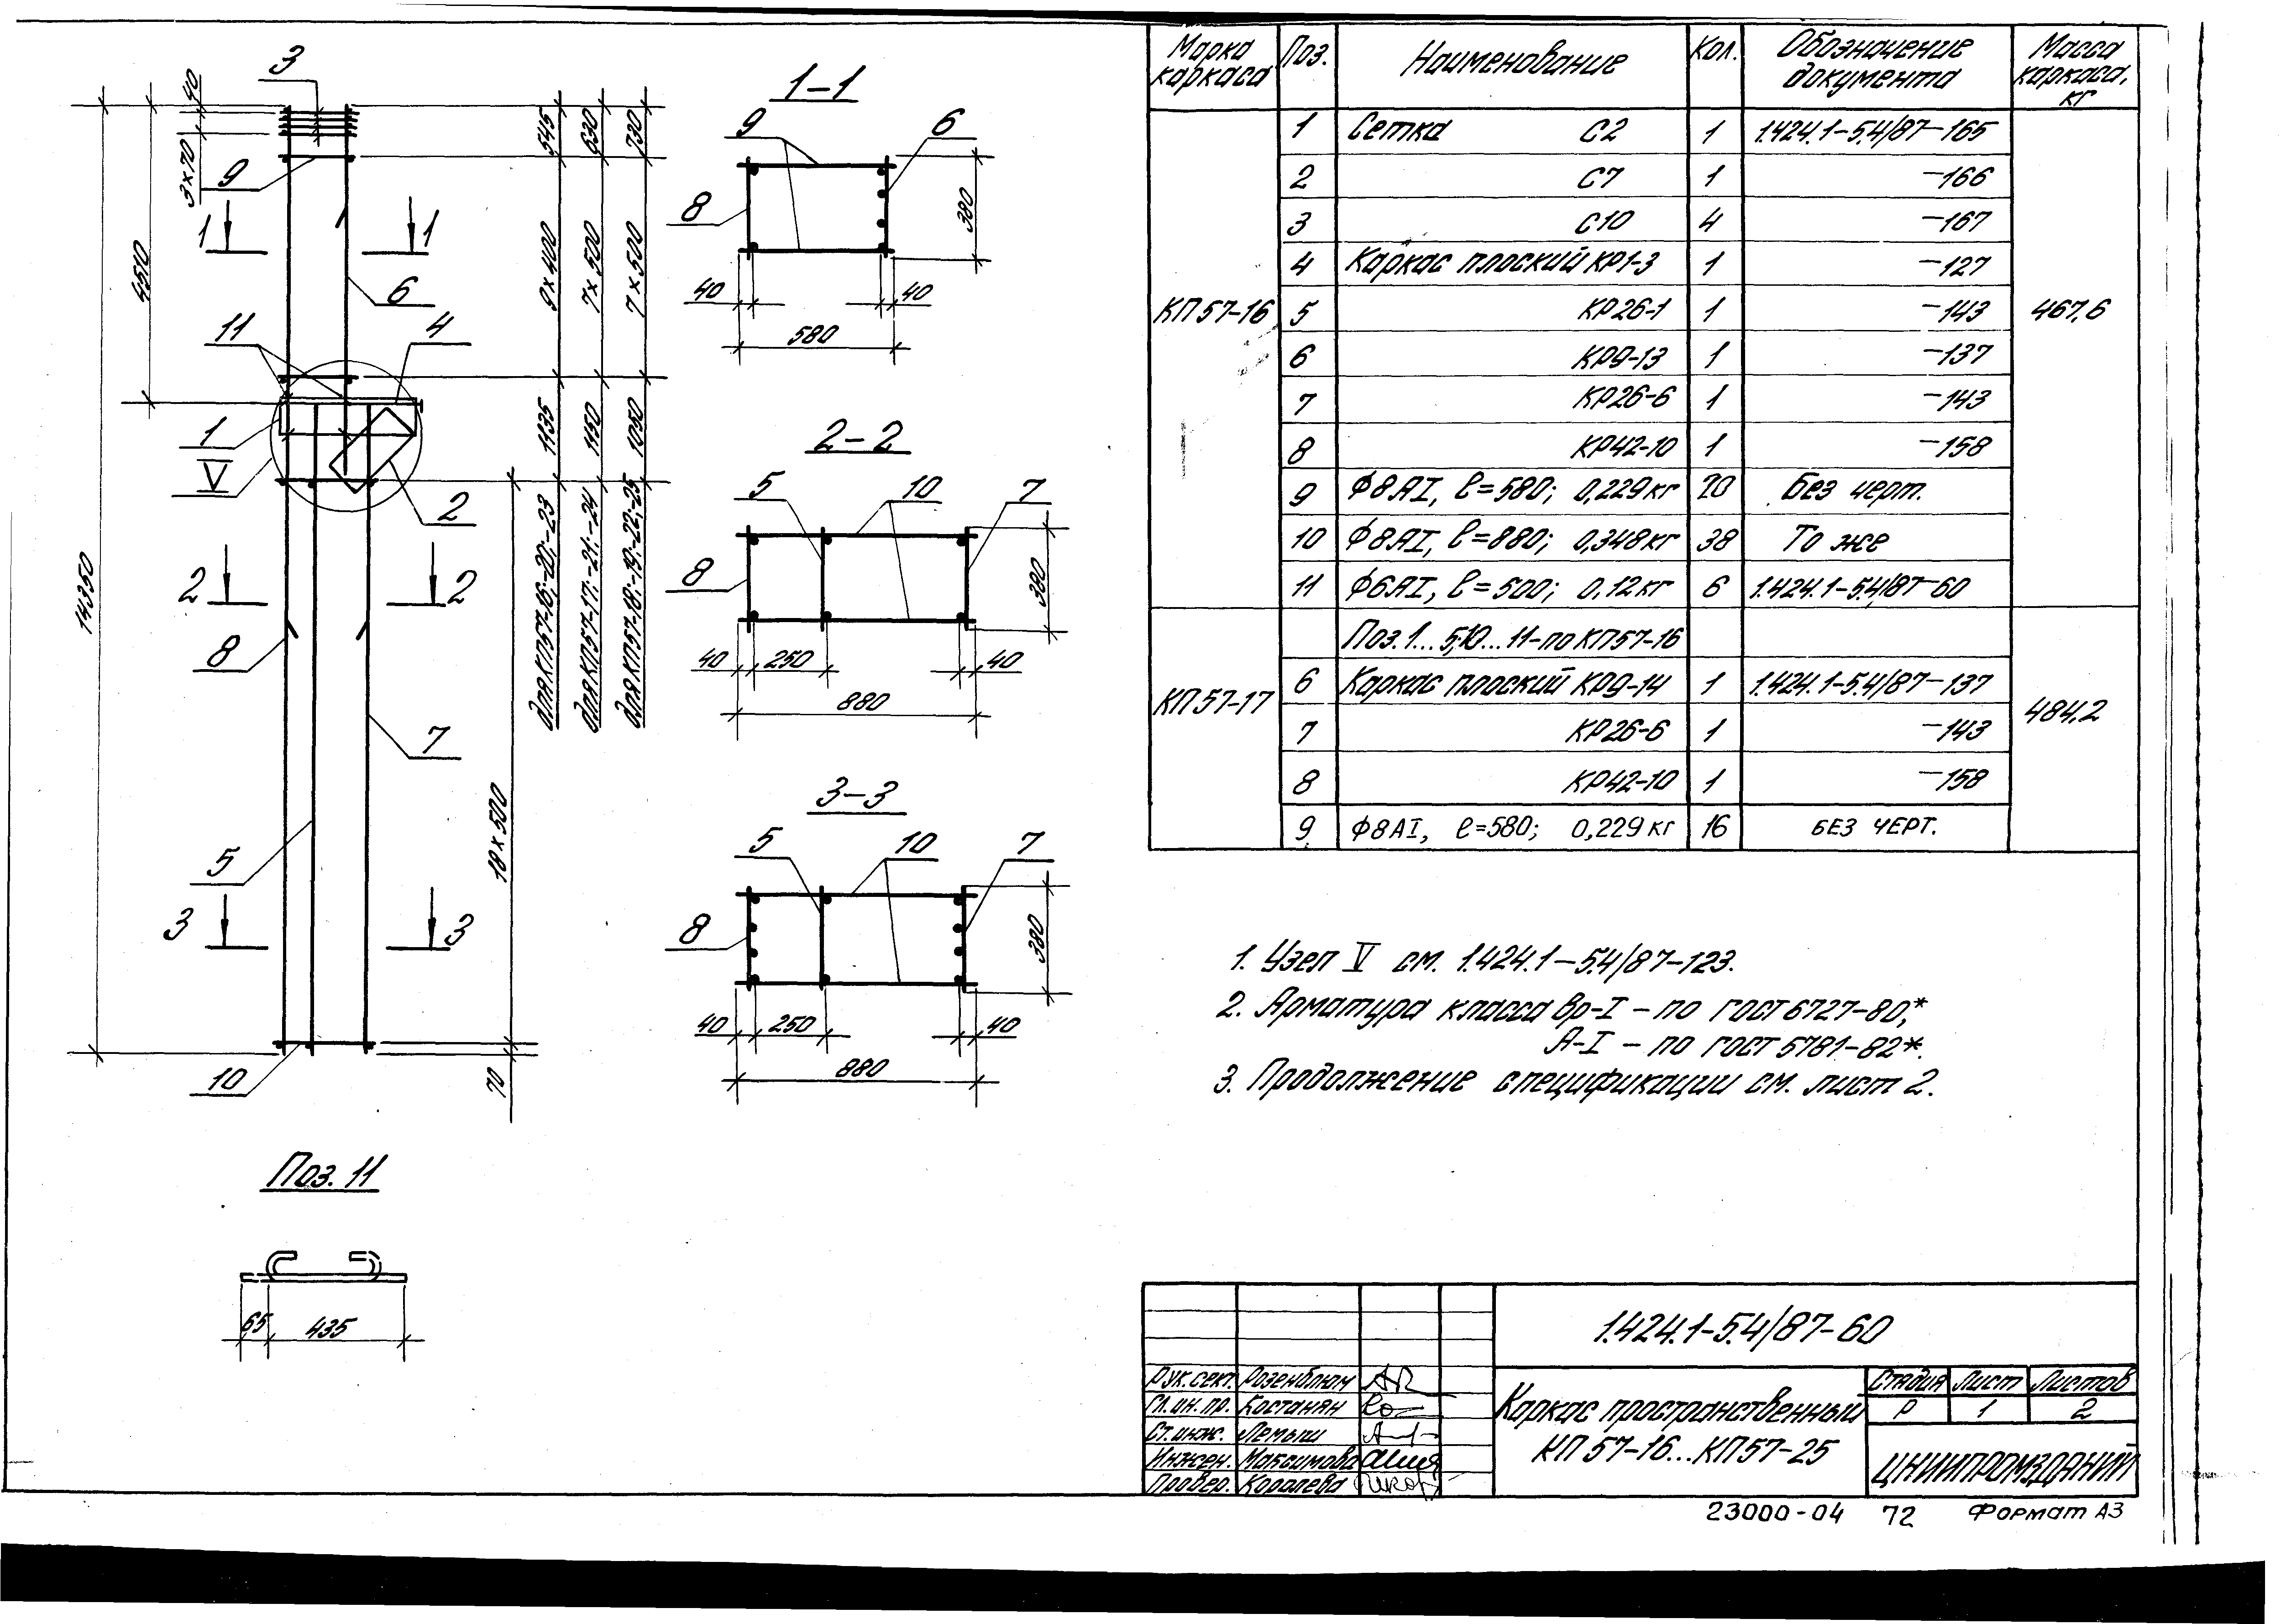 3
40
3×70
9
1 1
4510
6
11
4
1
V
2
14350
2 2
8
7
5
3 3
10
18×500
70
545
630
730
9×400
7×500
7×500
1135
1150
1050
для КП57-16;-20;-23
для КП57-17;-21;-24
для КП57-18;-19;-22;-25
1-1
9 6
8
380
40 40
580
2-2
5 10 7
8
380
40 250 40
880
3-3
5 10 7
8
380
40 250 40
880
Поз. 11
65 435
Марка каркаса Поз. Наименование Кол. Обозначение документа Масса каркаса, кг
КП57-16 467,6
1 Сетка С2 1 1.424.1-5.4/87-165
2 С7 1 -166
3 С10 4 -167
4 Каркас плоский КР1-3 1 -127
5 КР26-1 1 -143
6 КР9-13 1 -137
7 КР26-6 1 -143
8 КР42-10 1 -158
9 Ф8АI, ℓ=580; 0,229кг 20 Без черт.
10 Ф8АI, ℓ=880; 0,348кг 38 То же
11 Ф6АI, ℓ=500; 0,12кг 6 1.424.1-5.4/87-60
КП57-17 484,2
Поз. 1...5;10...11-по КП57-16
6 Каркас плоский КР9-14 1 1.424.1-5.4/87-137
7 КР26-6 1 -143
8 КР42-10 1 -158
9 Ф8АI, ℓ=580; 0,229кг 16 БЕЗ ЧЕРТ.
1. Узел V см. 1.424.1-5.4/87-123.
2. Арматура класса Вр-I - по ГОСТ 6727-80,*
А-I - по ГОСТ 5781-82*.
3. Продолжение спецификации см. лист 2.
1.424.1-5.4/87-60
Рук. сект. Розенблюм
Гл. ин. пр. Костанян
Ст. инж. Лемыш
Инжен. Максимова
Провер. Королева
Каркас пространственный
КП57-16...КП57-25
Стадия Лист Листов
Р 1 2
ЦНИИПРОМЗДАНИЙ
23000-04 72 Формат А3